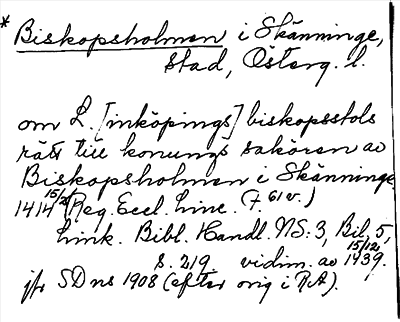 * Biskopsholmen i Skänninge,
stad, Österg. l.
om L.[inköpings] biskopsstols
rätt till konungs saköran av
Biskopsholmen i Skänninge
1414 15/2 (Reg. Eccl. Linc. (f. 61 v.)
Link. Bibl. Handl. NS: 3, Bil. 5,
s. 219 vidim. av 15/12 1439.
jfr SDns 1908 (efter orig i RA).